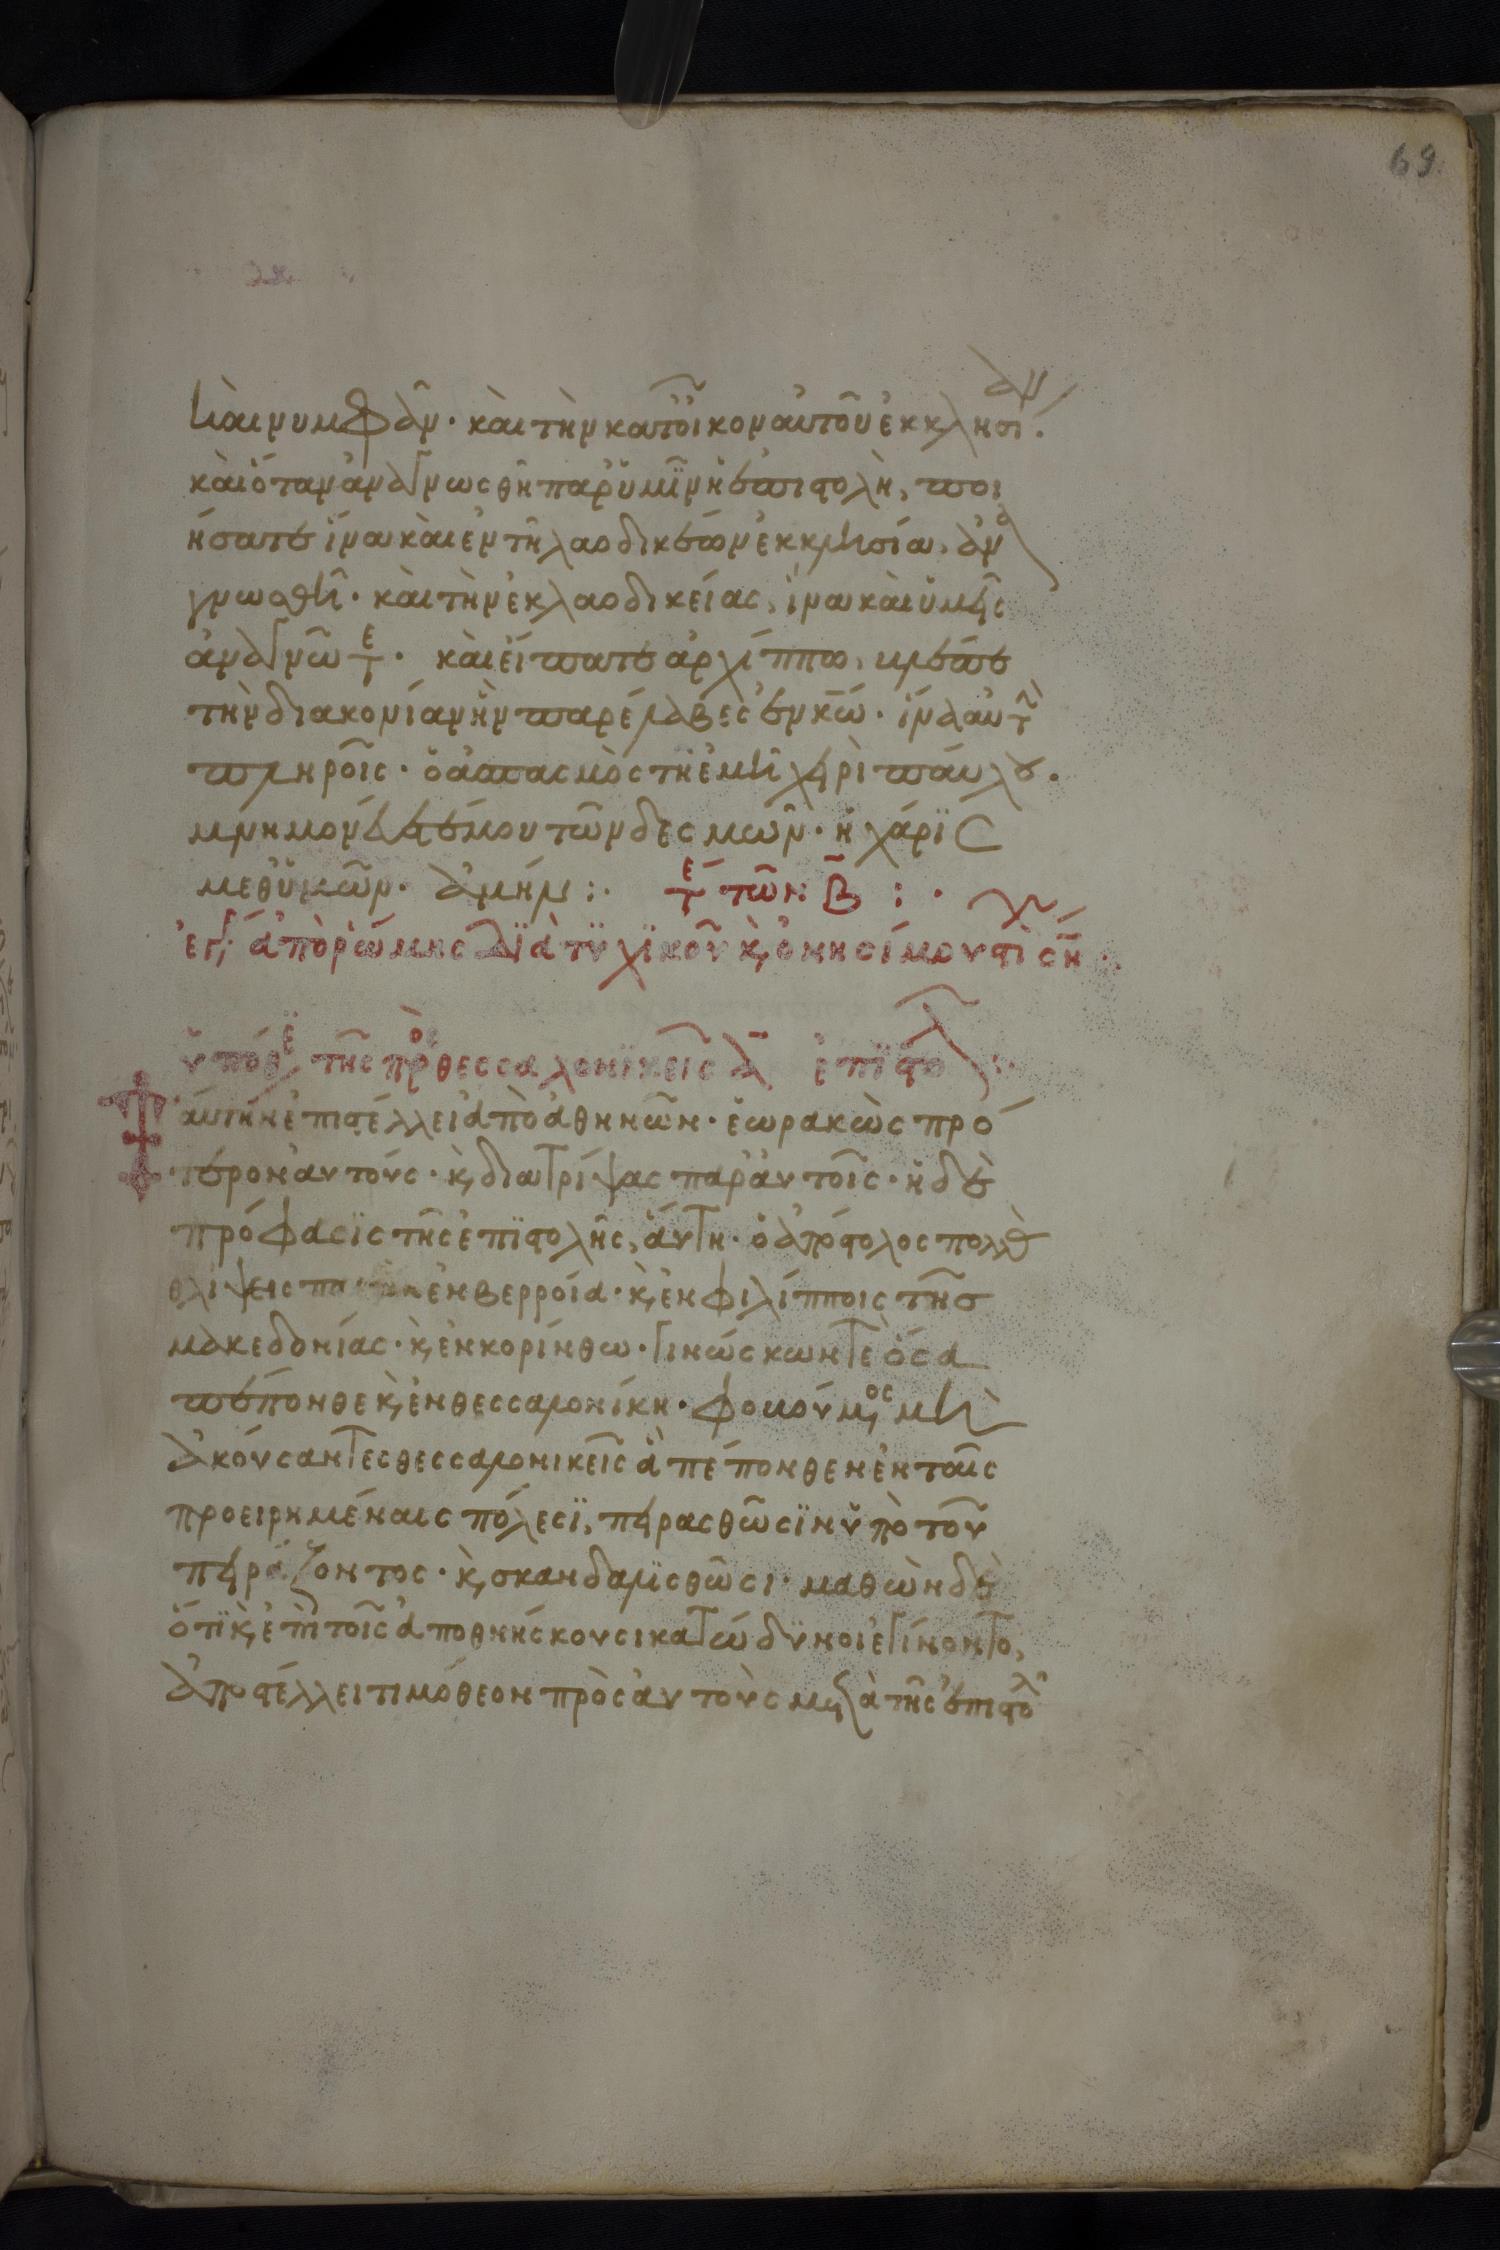 69
καὶ νυμφᾶν· καὶ τὴν κατ οἶκον αὐτοῦ ἐκκλησίαν.
καὶ ὅταν ἀναγνωσθῇ παρ ὑμῖν ἡ ἐπιστολὴ, ποι
ήσατε ἵνα καὶ ἐν τῇ λαοδικέων ἐκκλησία ἀνα
γνωσθῇ· καὶ τὴν ἐκ λαοδικείας, ἵνα καὶ ὑμεῖς
ἀναγνῶτε· καὶ εἴπατε ἀρχίππω, βλέπε
τὴν διακονίαν ἣν παρέλαβες ἐν κῶ· ἵνα αὐτὴν
πληροῖς· ὁ ἀσπασμὸς τῇ ἐμῇ χειρὶ παύλου.
μνημονεύετέ μου τῶν δεσμῶν· ἡ χάρις
μεθ ὑμῶν· ἀμήν :·
ἐγρ ἀπὸ ῥώμης διὰ τυχικοῦ κ ὀνησίμου στὶ ση
ὑπόθε τῆς πρὸς θεσσαλονικεῖς α ἐπιστολ :·
ταύτην ἐπιστέλλει ἀπὸ ἀθηνῶν· ἑωρακὼς πρό
τερον αὐτούς· κ διατρίψας παρ αὐτοῖς· ἡ δὲ
πρόφασις τῆς ἐπιστολῆς, αὕτη· ὁ ἀπόστολος πολλὰς
θλίψεις παθὼν ἐν βερροία· κ ἐν φιλίπποις τῆς
μακεδονίας· κ ἐν κορίνθω· γινώσκων τε ὅσα
πέπονθε κ ἐν θεσσαλονίκη· φοβούμενος μὴ
ἀκούσαντες θεσσαλονικεῖς ἃ πέπονθεν ἐν ταῖς
προειρημέναις πόλεσι, πειρασθῶσιν ὑπὸ τοῦ
πειράζοντος· κ σκανδαλισθῶσι· μαθὼν δὲ
ὅτι κ ἐπὶ τοῖς ἀποθνήσκουσι κατώδυνοι ἐγίνοντο,
ἀποστέλλει τιμόθεον πρὸς αὐτοὺς μετὰ τῆς ἐπιστολ